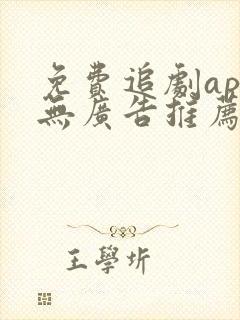 免費追劇ap
無廣告推薦
王學圻